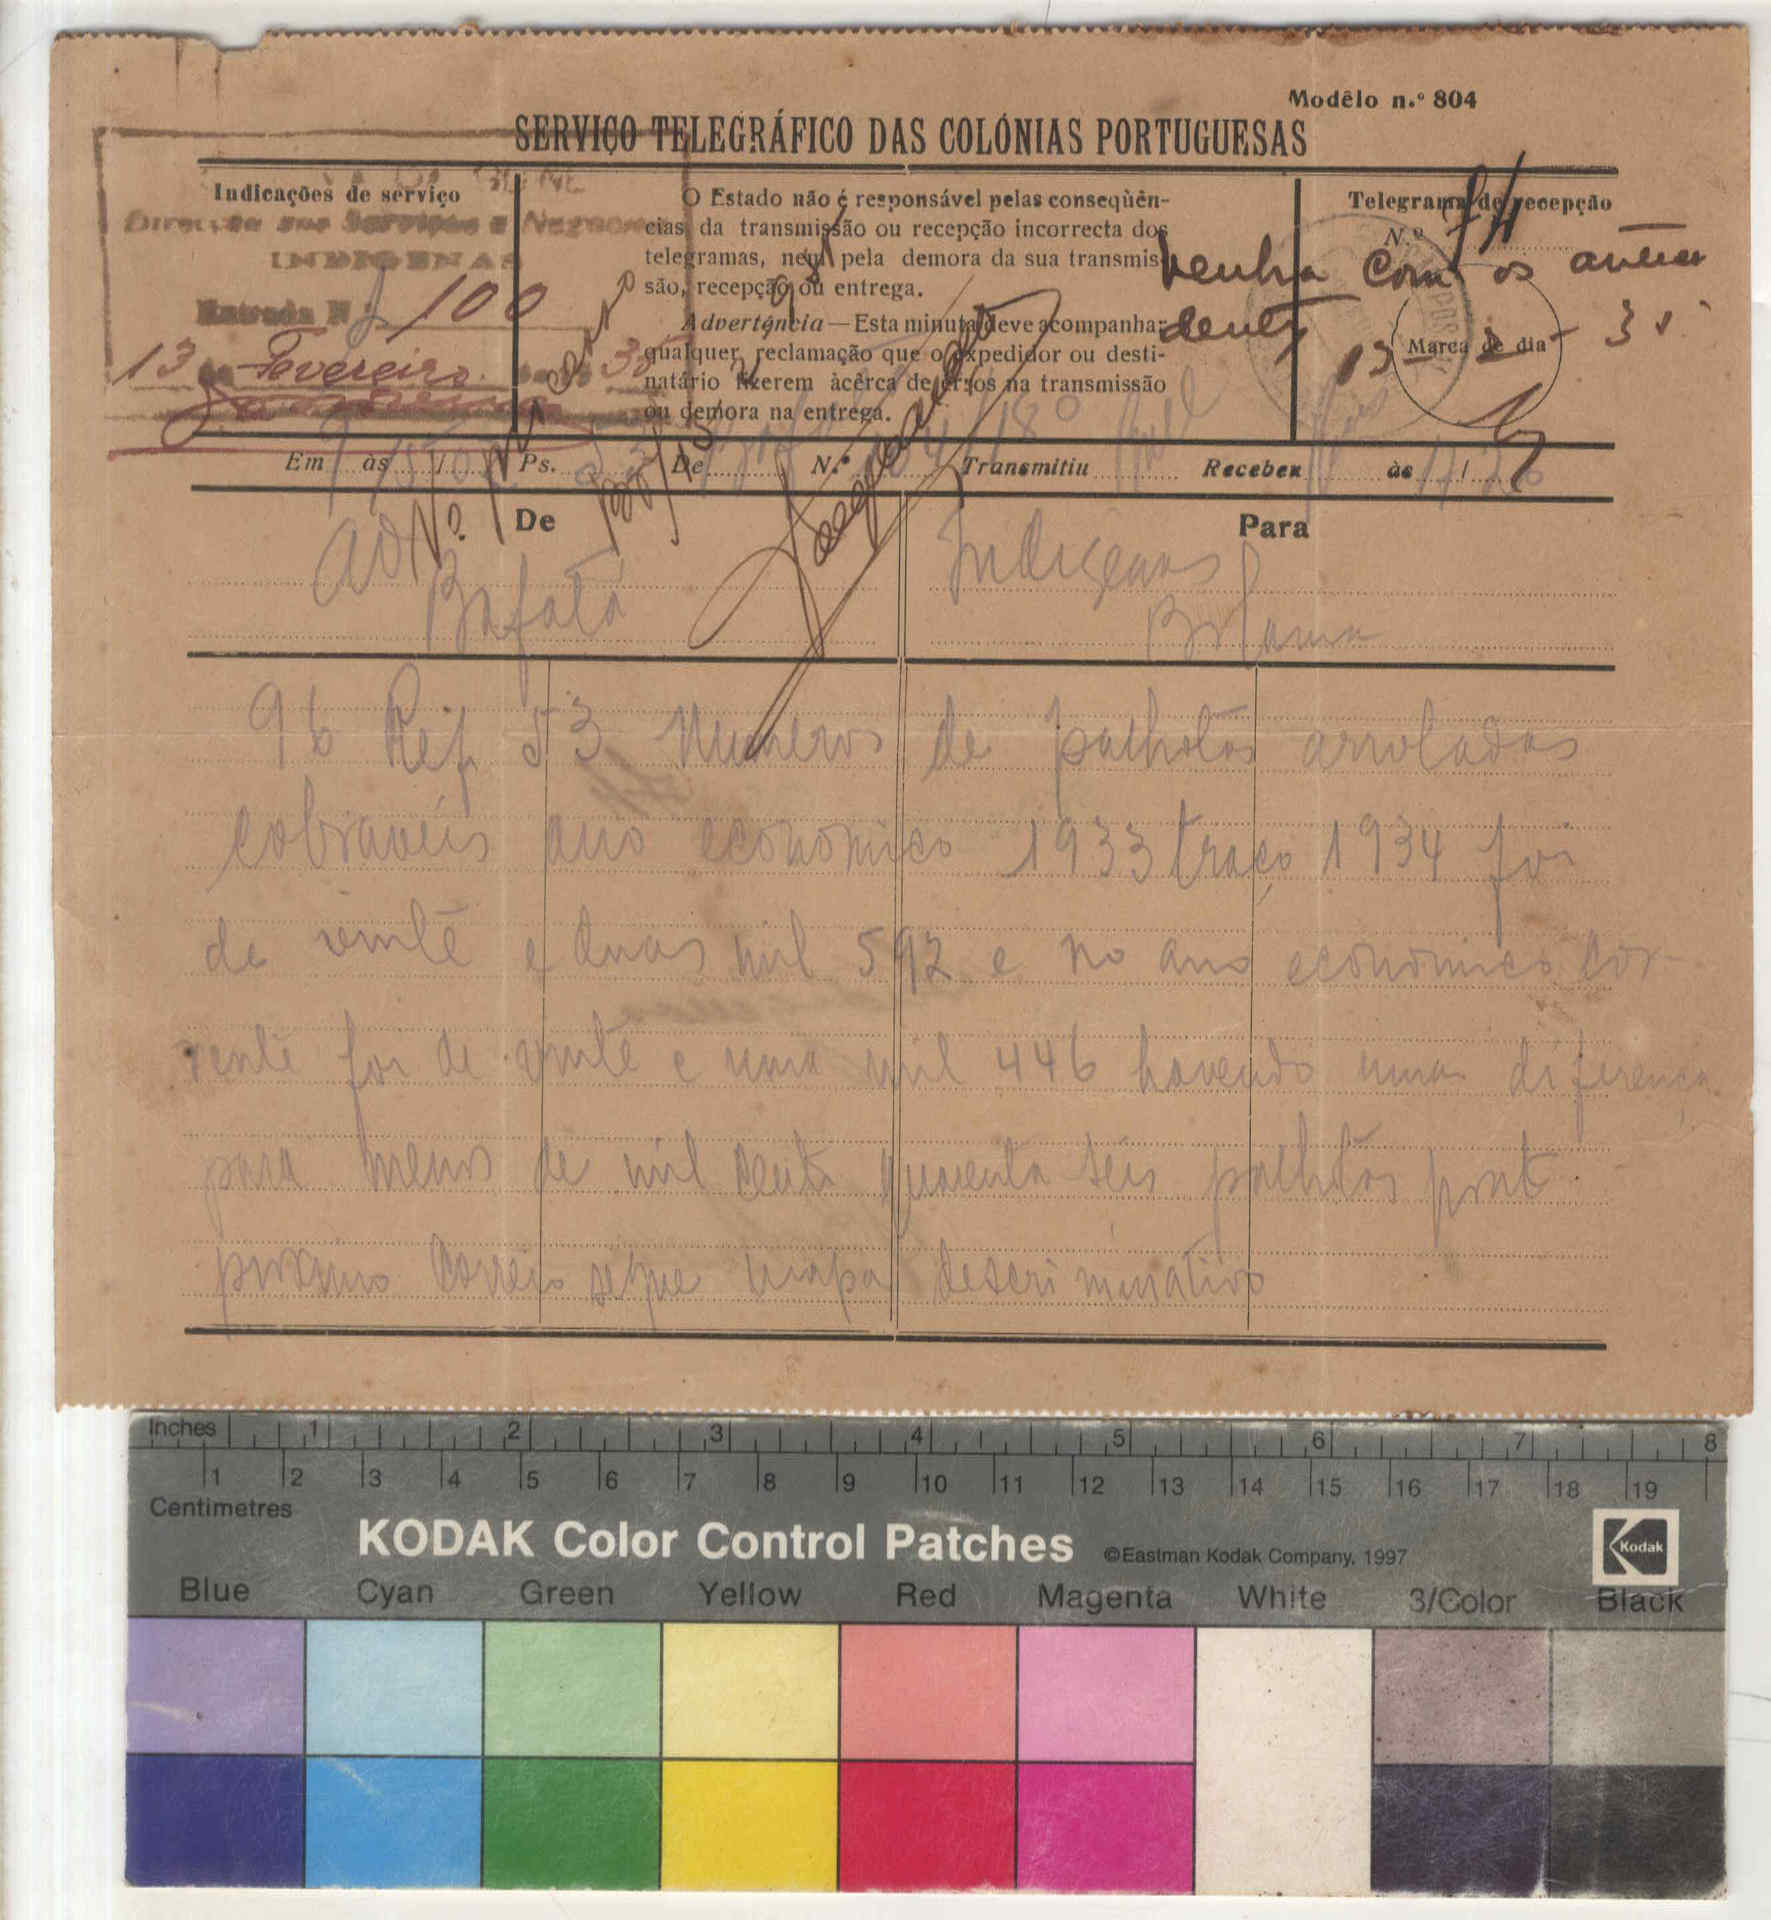 Modêlo n.º 804
SERVIÇO TELEGRÁFICO DAS COLÓNIAS PORTUGUESAS
Indicações de serviço
Direcção dos Serviços e Negocios
INDIGENAS
Entrada N.º 100
13 de Fevereiro de 1935
O Estado não é responsável pelas conseqüên-
cias da transmissão ou recepção incorrecta dos
telegramas, nem pela demora da sua transmis-
são, recepção ou entrega.
Advertência—Esta minuta deve acompanhar
qualquer reclamação que o expedidor ou desti-
natário fizerem àcêrca de erros na transmissão
ou demora na entrega.
Telegrama de recepção
N.º 74
Venha com os antece
dentes
13-2-35
Marca de dia
Em às / Ps. De N.º Transmitiu Recebeu às /
De
Para
Adm
Bafatá
Indigenas
Bolama
96 Ref 53 Numeros de palhotas arroladas
cobraveis ano economico 1933 traço 1934 foi
de vinte e duas mil 592 e no ano economico cor-
rente foi de vinte e uma mil 446 havendo uma diferença
para menos de mil cento quarenta seis palhotas pont
proximo correio segue mapa descriminativo
Inches 1 2 3 4 5 6 7 8
1 2 3 4 5 6 7 8 9 10 11 12 13 14 15 16 17 18 19
Centimetres
KODAK Color Control Patches ©Eastman Kodak Company, 1997
Kodak
Blue Cyan Green Yellow Red Magenta White 3/Color Black